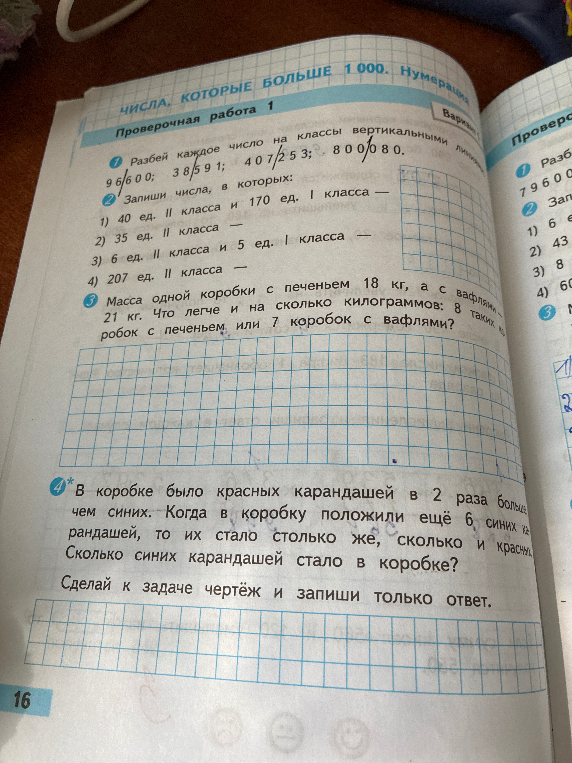 ЧИСЛА, КОТОРЫЕ БОЛЬШЕ 1 000. Нумерация
Проверочная работа 1
Вариант
1 Разбей каждое число на классы вертикальными линиями
96/600; 38/591; 407/253; 800/080.
2 Запиши числа, в которых:
1) 40 ед. II класса и 170 ед. I класса —
2) 35 ед. II класса —
3) 6 ед. II класса и 5 ед. I класса —
4) 207 ед. II класса —
3 Масса одной коробки с печеньем 18 кг, а с вафлями —
21 кг. Что легче и на сколько килограммов: 8 таких ко
робок с печеньем или 7 коробок с вафлями?
4* В коробке было красных карандашей в 2 раза больше,
чем синих. Когда в коробку положили ещё 6 синих ка
рандашей, то их стало столько же, сколько и красных.
Сколько синих карандашей стало в коробке?
Сделай к задаче чертёж и запиши только ответ.
16
Провероч
1 Разб
79600
2 Зап
1) 6 е
2) 43
3) 8
4) 60
3